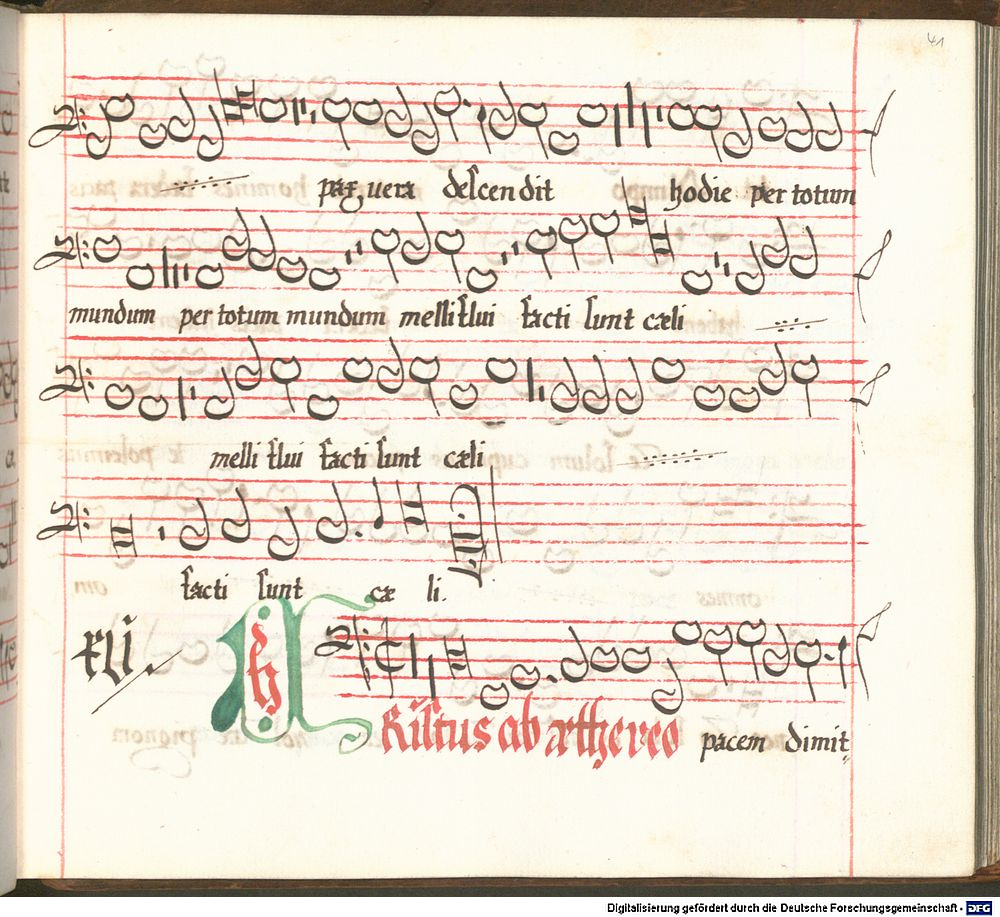 41
pax uera descendit hodie per totum
mundum per totum mundum melliflui facti sunt cæli
melliflui facti sunt cæli
facti sunt cæ li.
xlii. CHRistus ab æthereo pacem dimit
Digitalisierung gefördert durch die Deutsche Forschungsgemeinschaft - DFG